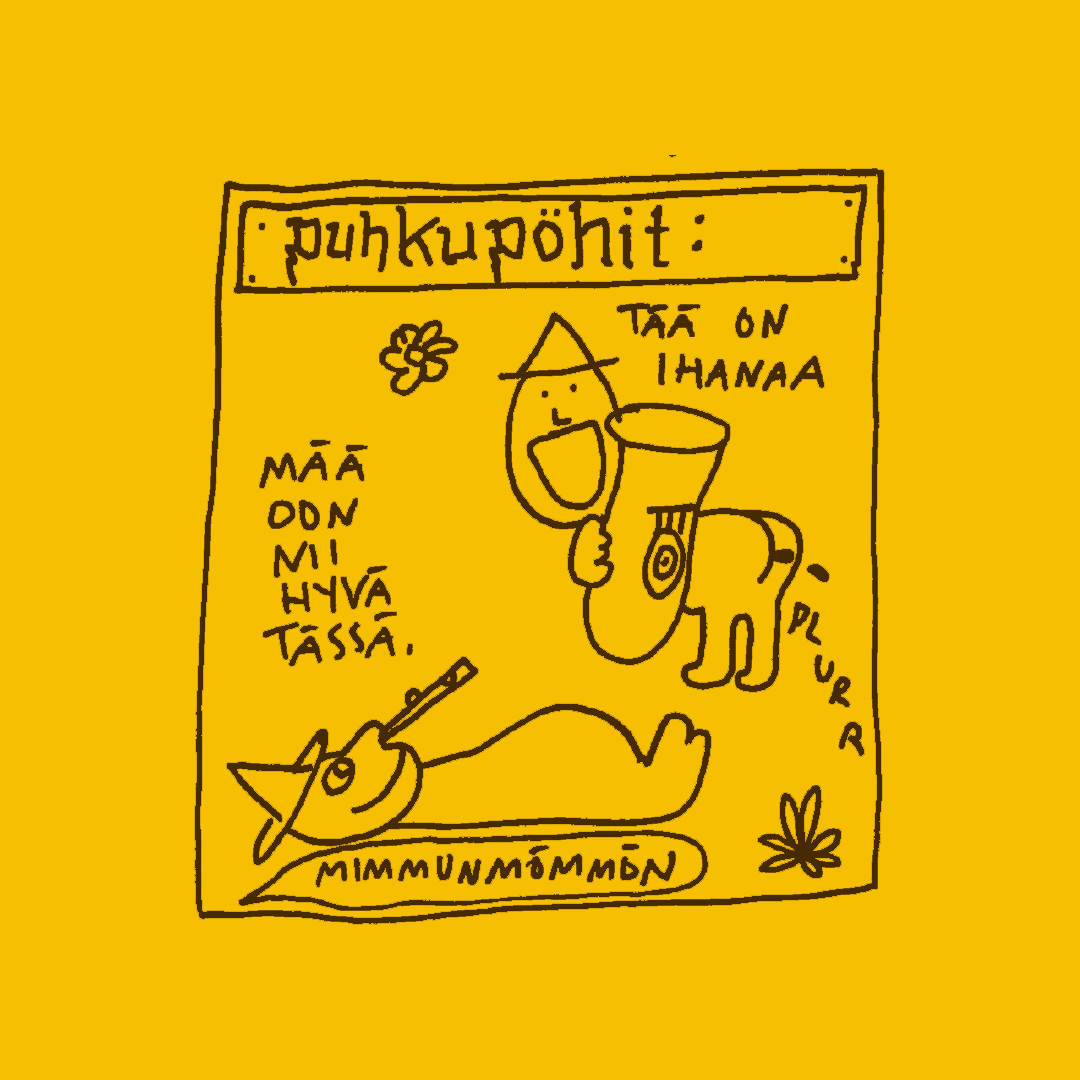 puhkupöhit:
TÄÄ ON
IHANAA
MÄÄ
OON
NII
HYVÄ
TÄSSÄ.
PLURR
MIMMUNMÖMMÖN